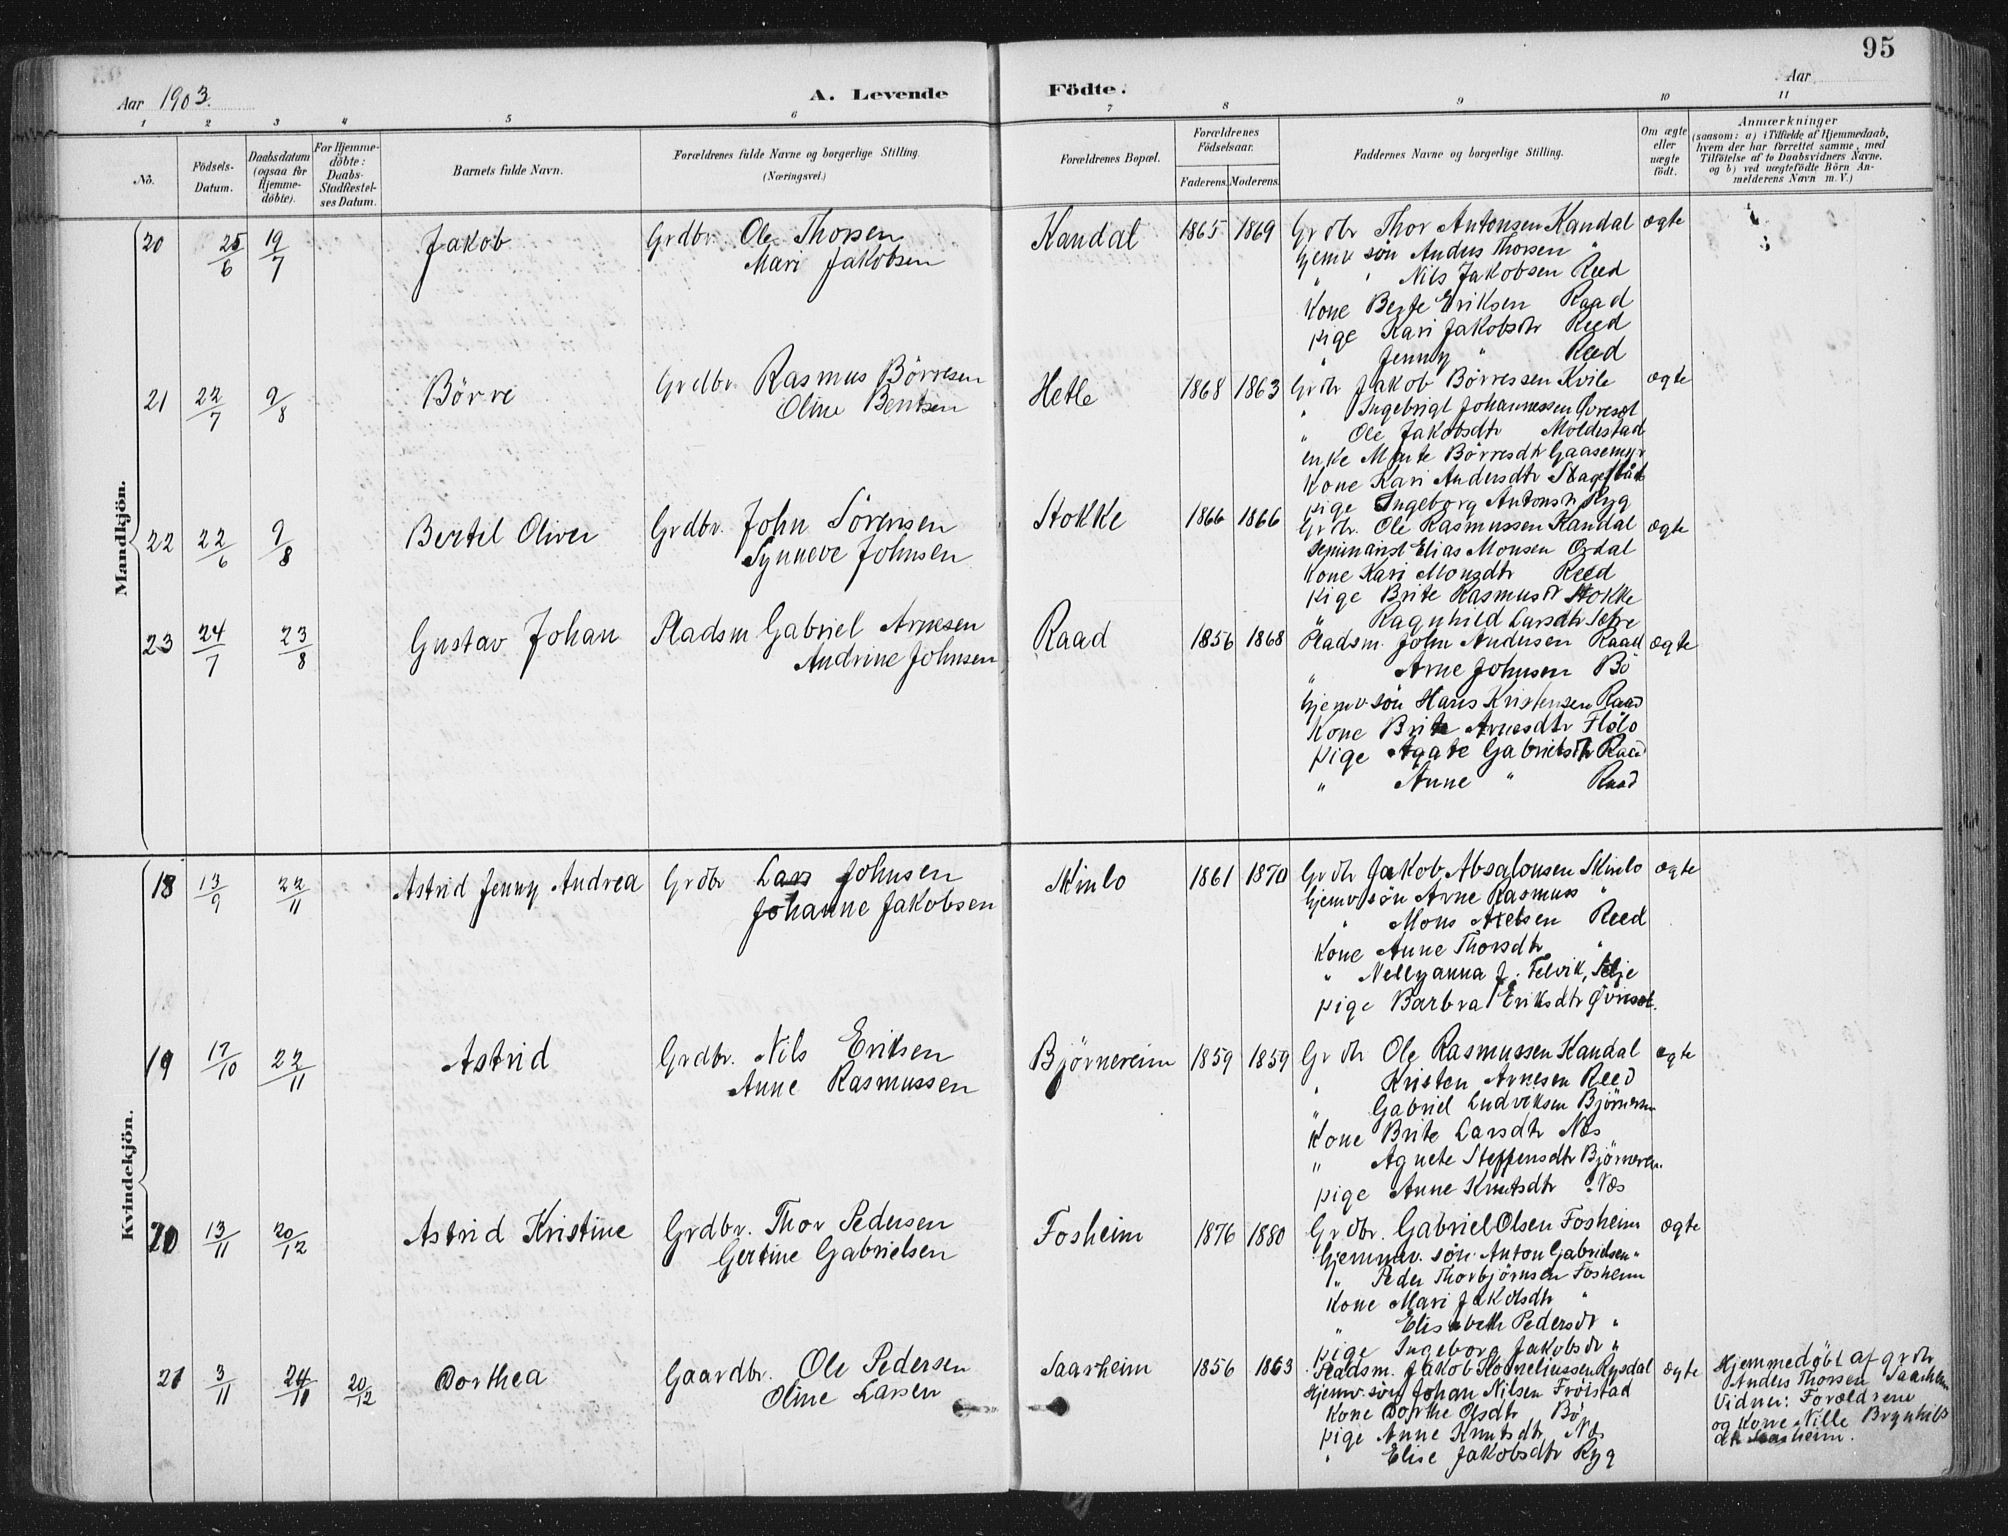 95
Aar 1903.
A. Levende Födte.
Aar
1 2 3 4 5 6 7 8 9 10 11
No.
Födsels-Datum.
Daabsdatum (ogsaa for Hjemme-döbte).
For Hjemme-döbte: Daabs-Stadfæstel-ses Datum.
Barnets fulde Navn.
Forældrenes fulde Navne og borgerlige Stilling.
(Næringsvei.)
Forældrenes Bopæl.
Forældrenes Födselsaar.
Faderens. Moderens.
Faddernes Navne og borgerlige Stilling.
Om ægte eller uægte födt.
Anmærkninger
(saasom: a) i Tilfælde af Hjemmedaab,
hvem der har forrettet samme, med
Tilföielse af to Daabsvidners Navne.
og b) ved uægtefödte Börn An-
melderens Navn m. V.)
Mandkjön.
20 25/6 19/7 Jakob Grdbr. Ole Thorsen Kandal 1865 1869 Grdbr Thor Antonsen Kandal ægte
Mari Jakobsen
hjemv søn Anders Thorsen "
" Nils Jakobsen Reed
Kone Berte Eriksen Raad
pige Kari Jakobsdtr Reed
" Jenny " Reed
21 22/7 9/8 Börre Grdbr. Rasmus Börresen Hetle 1868 1863 Grdbr Jakob Børressen Kvile ægte
Oline Bentsen
" Ingebrigt Johannessen Øvreset
" Ole Jakobsdtr Moldestad
enke Marte Børresdtr Gaasemyr
Kone Kari Andersdtr
pige Ingeborg Antonsdtr Ryg
22 22/6 9/8 Bertel Oliver Grdbr. John Sörensen Stokke 1866 1866 Grdbr. Ole Rasmussen Kandal ægte
Synneve Johnsen
Seminarist Elias Monsen
Kone Kari Monsdtr Reed
pige Brite Rasmusdtr Stokke
" Ragnhild Larsdtr
23 24/7 23/8 Gustav Johan Pladsm Gabriel Arnesen Raad 1856 1868 Pladsm. John Andersen Raad ægte
Andrine Johnsen
" Arne Johnsen Bö
hjemv søn Hans Kristensen Raad
Kone Brite Arnesdtr Flølo
pige Agate Gabrielsdtr Raad
" Anne " Raad
Kvindekjön.
18 13/9 22/11 Astrid Jenny Andrea Grdbr Lars Johnsen Skinlo 1861 1870 Grdbr Jakob Absalonsen Skinlo ægte
Johanne Jakobsen
hjemv søn Arne Rasmuss "
" Mons Axelsen Reed
Kone Anne Thorsdtr "
" Nellyanna J. Felvik, Selje
pige Barbra Eriksdtr Øvreset.
19 17/10 22/11 Astrid Grdbr. Nils Eriksen Björnereim 1859 1859 Grdbr Ole Rasmussen Kandal ægte
Anne Rasmussen
" Kristen Arnesen Reed
" Gabriel Ludviksen Bjørnereim
Kone Brite Larsdtr Næs
" Agnete Steffensdtr Bjørnereim.
pige Anne Knutsdtr Næs
20 13/11 20/12 Astrid Kristine Grdbr. Thor Pedersen Fosheim 1876 1880 Grdbr. Gabriel Olsen Fosheim ægte
Gertine Gabrielsen
hjemmv. søn Anton Gabrielsen "
" Peder Thorbjörnsen Fosheim
Kone Mari Jakobsdtr "
" Elisabeth Pedersdtr "
pige Ingeborg Jakobsdtr "
21 3/11 20/12 Dorthea Gaardbr. Ole Pedersen Saarheim 1856 1863 Pladsm. Jakob Korneliussen Rysdal ægte Hjemmedøbt af grdbr
Oline Larsen
hjemv. søn Johan Nilsen Frøistad Anders Thorsen Saarheim
Kone Dorthe Olsdtr Bø Vidner: Forældrene
pige Anne Knutsdtr Næs og Kone Nille Brynhilds
" Elise Jakobsdtr Ryg dtr Saarheim.